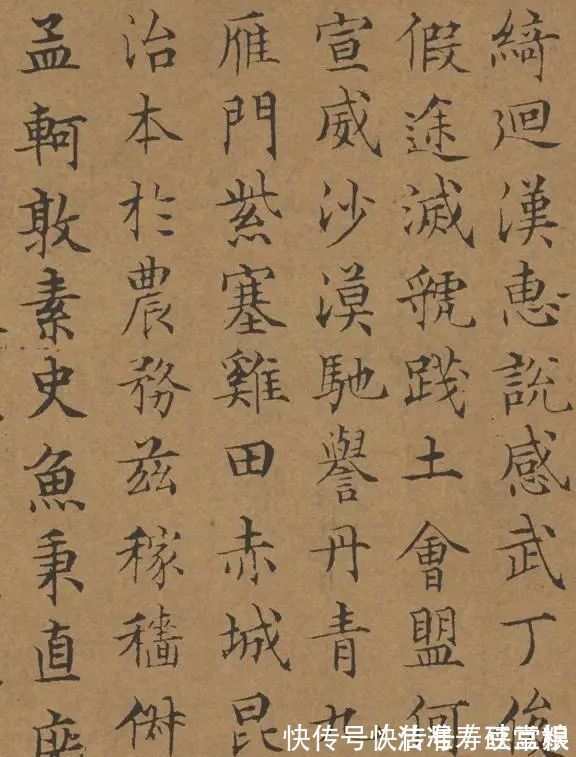 綺迴漢惠説感武丁俊
假途滅虢踐土會盟何
宣威沙漠馳譽丹青九
雁門紫塞雞田赤城昆
治本於農務兹稼穡俶
孟軻敦素史魚秉直庶
快传号